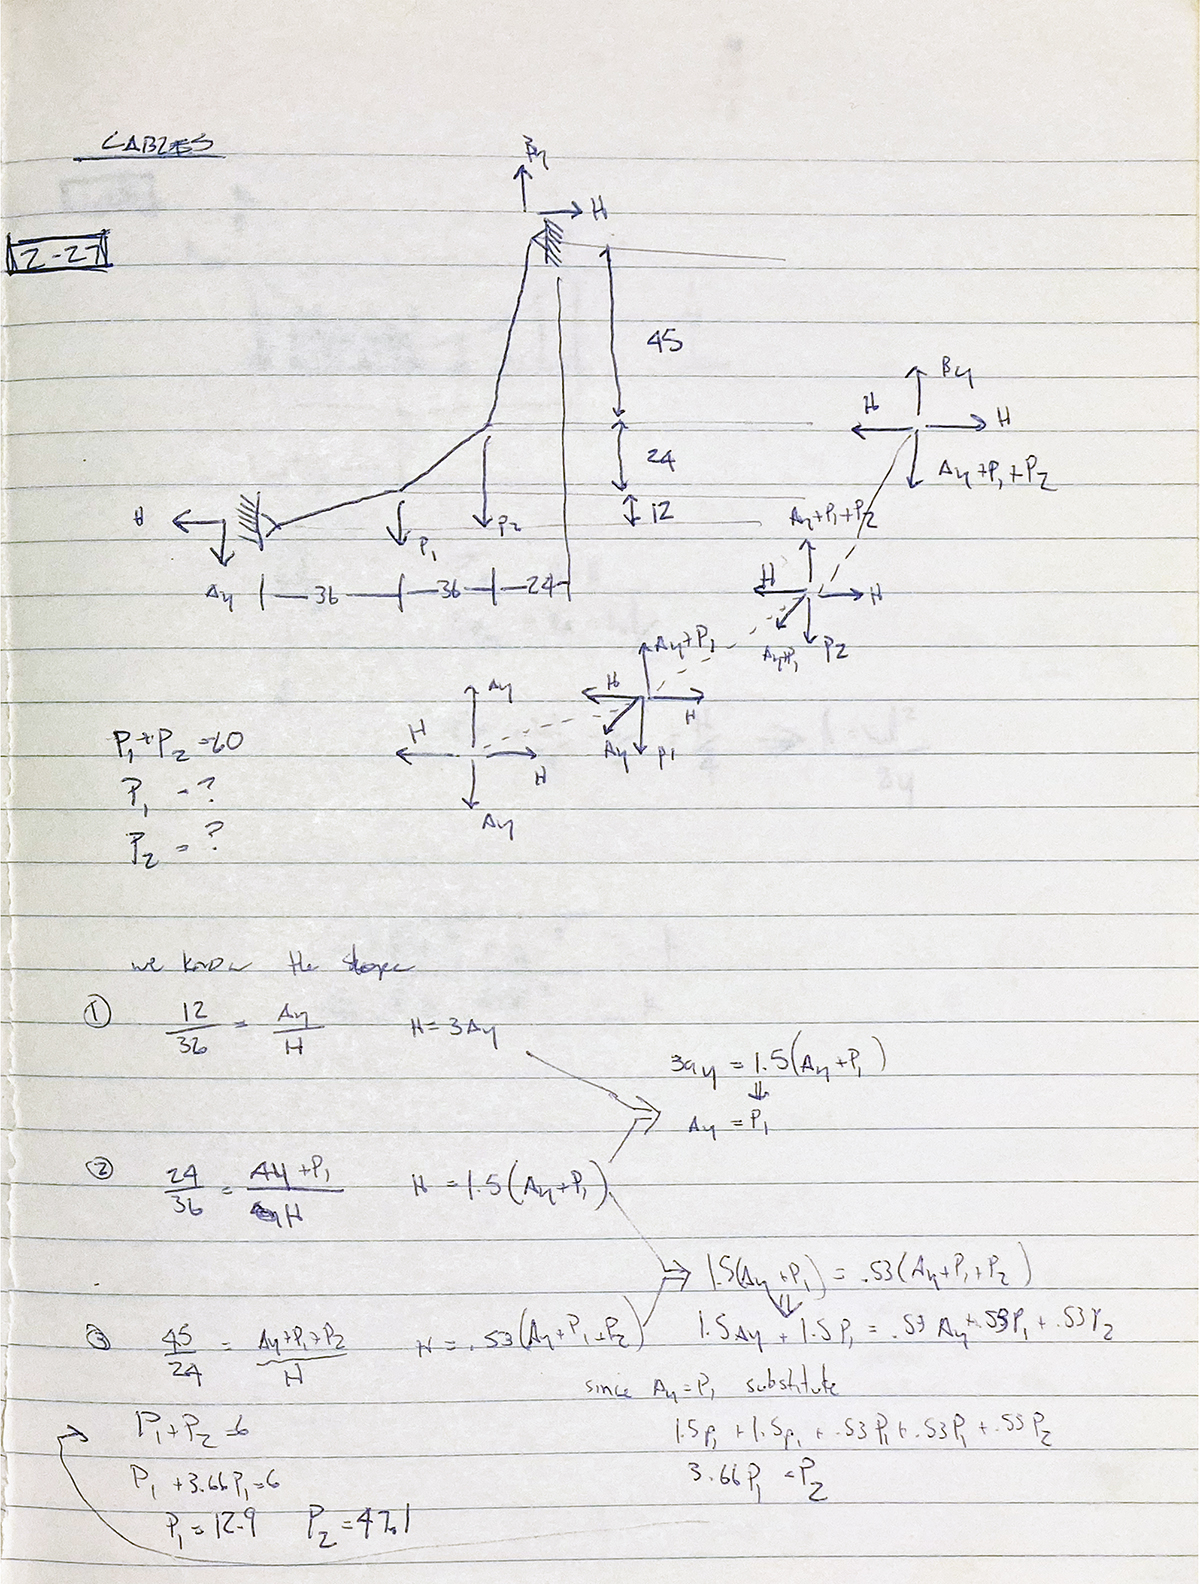 CABLES
2-27
By
H
45
24
12
H
Ay
P1
P2
36
36
24
By
H
H
Ay+P1+P2
Ay+P1+P2
H
H
Ay+P1
P2
Ay+P1
H
H
Ay
P1
Ay
H
H
Ay
P1+P2=60
P1 = ?
P2 = ?
we know the slope
① 12/36 = Ay/H H=3Ay
3ay = 1.5(Ay+P1)
⇓
Ay = P1
② 24/36 = Ay+P1/H H = 1.5(Ay+P1)
1.5(Ay+P1) = .53(Ay+P1+P2)
⇓
③ 45/24 = Ay+P1+P2/H H = .53(Ay+P1+P2)
1.5Ay + 1.5P1 = .53Ay+.53P1+.53P2
since Ay=P1 substitute
P1+P2=6
1.5P1 + 1.5P1 + .53P1+.53P1+.53P2
P1+3.66P1=6
3.66P1 = P2
P1=12.9 P2=47.1